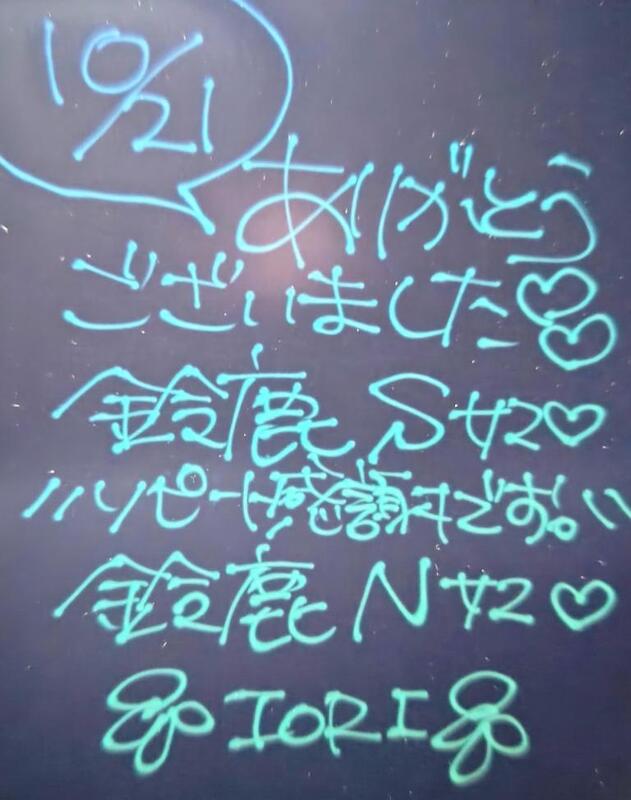 10/21
ありがとう
ございました♡♡
鈴鹿Sサマ♡
リピート感謝です。
鈴鹿Nサマ♡
IORI